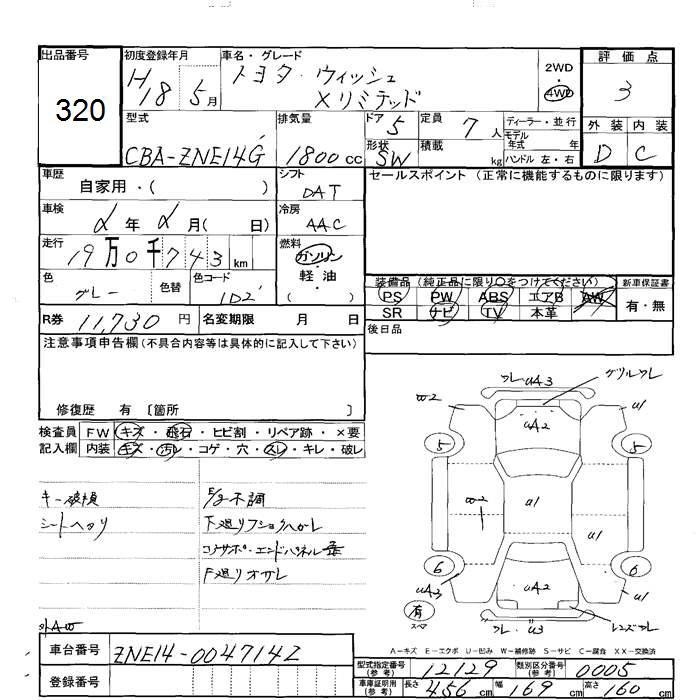 出品番号
320
初度登録年月
H18 5月
車名・グレード
トヨタ・ウィッシュ
Xリミテッド
2WD
・
4WD
評価点
3
外装 内装
D C
型式
CBA-ZNE14G
排気量
1800cc
ドア 5
形状 SW
定員 7人
積載 kg
ディーラー・並行
モデル
年式 年
ハンドル 左・右
車歴
自家用・( )
シフト
DAT
セールスポイント (正常に機能するものに限ります)
車検
年 月( 日)
冷房
AAC
走行
19万0千743km
燃料
ガソリン
軽・油
( )
色
グレー
色替
色コード
1D2
装備品 (純正品に限り○をつけてください)
PS PW ABS エアB AW
SR ナビ TV 本革
新車保証書
有・無
R券 11,730円
名変期限 月 日
後日品
注意事項申告欄(不具合内容等は具体的に記入して下さい)
修復歴 有 〔箇所 〕
検査員
記入欄
FW キズ・飛石・ヒビ割・リペア跡・×要
内装 キズ・汚レ・コゲ・穴・スレ・キレ・破レ
キー破損
シートヘタリ
下廻リフショクハガレ
外AW
ワレ UA3
グリルワレ
W2
U1
UA2
5
5
W2
U1
U1
6
6
UA3
UA2
U1
有
スペア
ワレ・U3
レンズワレ
A-キズ E-エクボ U-凹み W-補修跡 S-サビ C-腐食 XX-交換済
車台番号
ZNE14-0047142
登録番号
型式指定番号
(参考)
12129
類別区分番号
(参考)
0005
車庫証明用
(参考)
長さ 456cm 幅 169cm 高さ 160cm